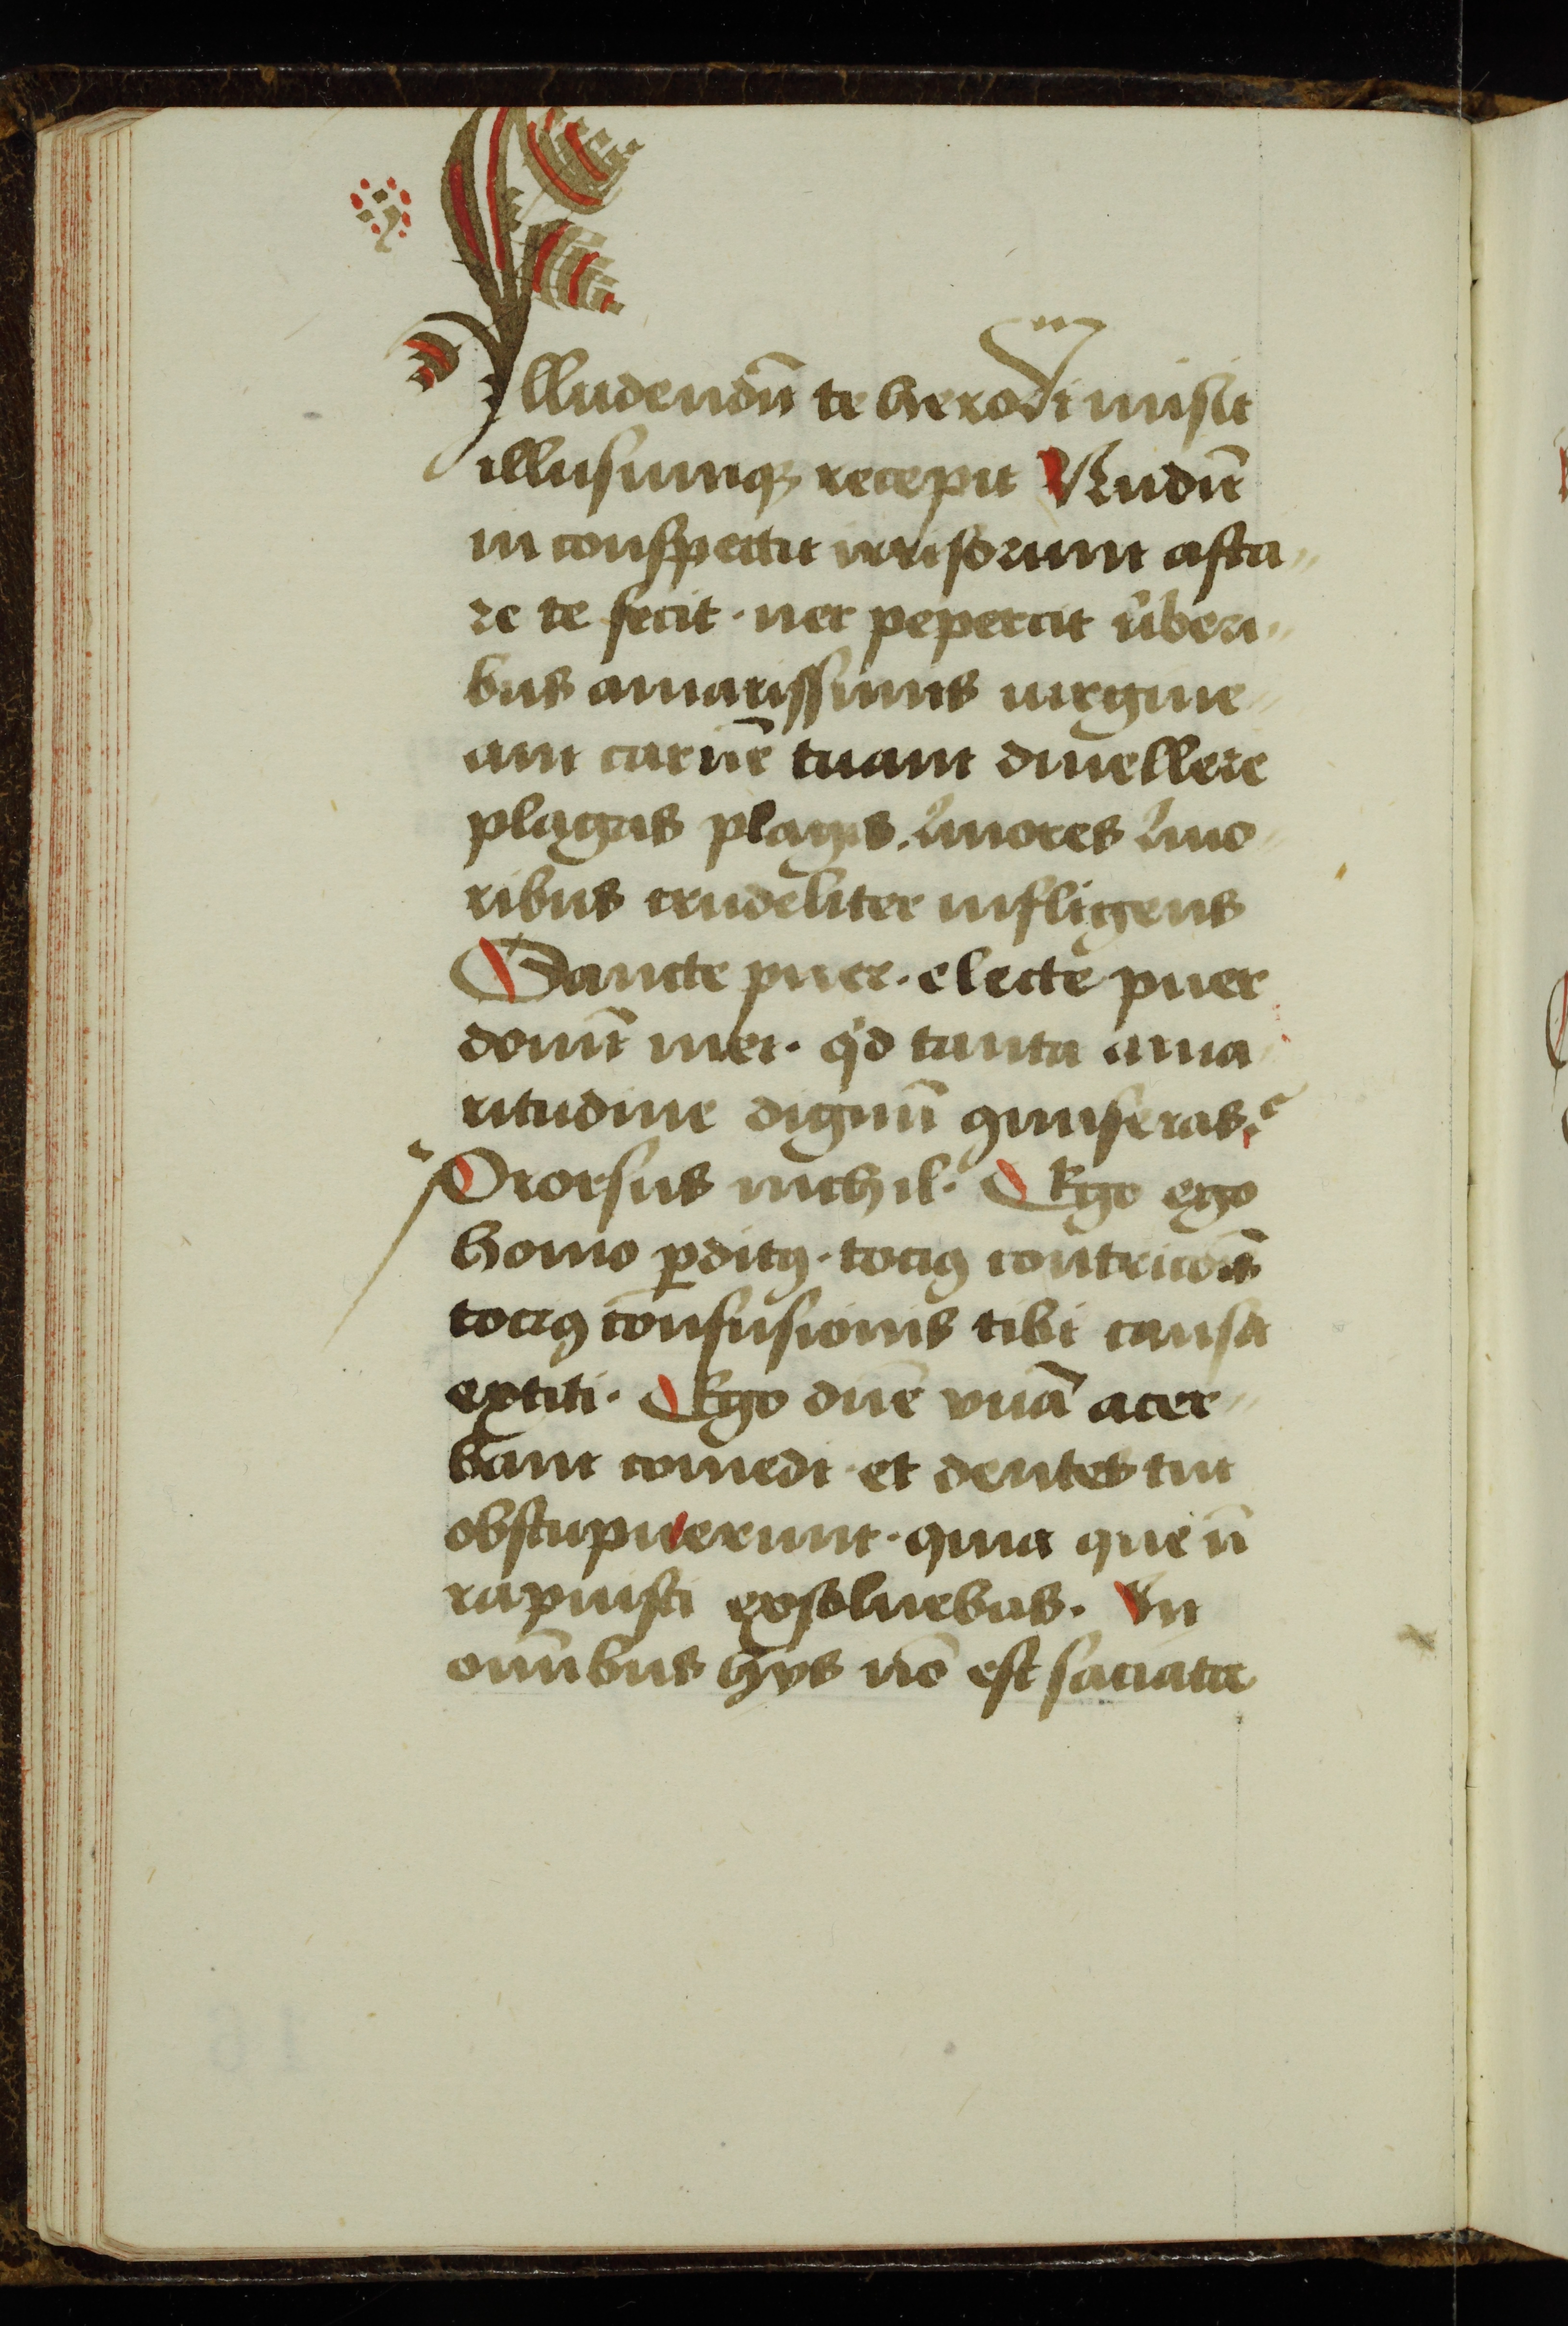 Illudendū te herodi misit
illusumqꝫ recepit Nudū
in conspectu irrisorum asta〃
re te fecit · nec pepercit uberi〃
bus amarissimis uirgine〃
am carnē tuam diuellere
plagas plagis. liuores liuo〃
ribus crudeliter infligens
Sancte puer · electe puer
domī mei · qͥd tanta ama〃
ritudine dignū ꝯmiseras?
Prorsus nichil · Ego ego
homo ꝑditꝰ · tociꝰ contricōīs
tociꝰ confusionis tibi causa
extiti · Ego dn̄e vuā acer〃
bam comedi · et dentes tui
obstupuerunt · quia que n̄
rapuisti exsoluebas. In
omībus hys nō est saciata